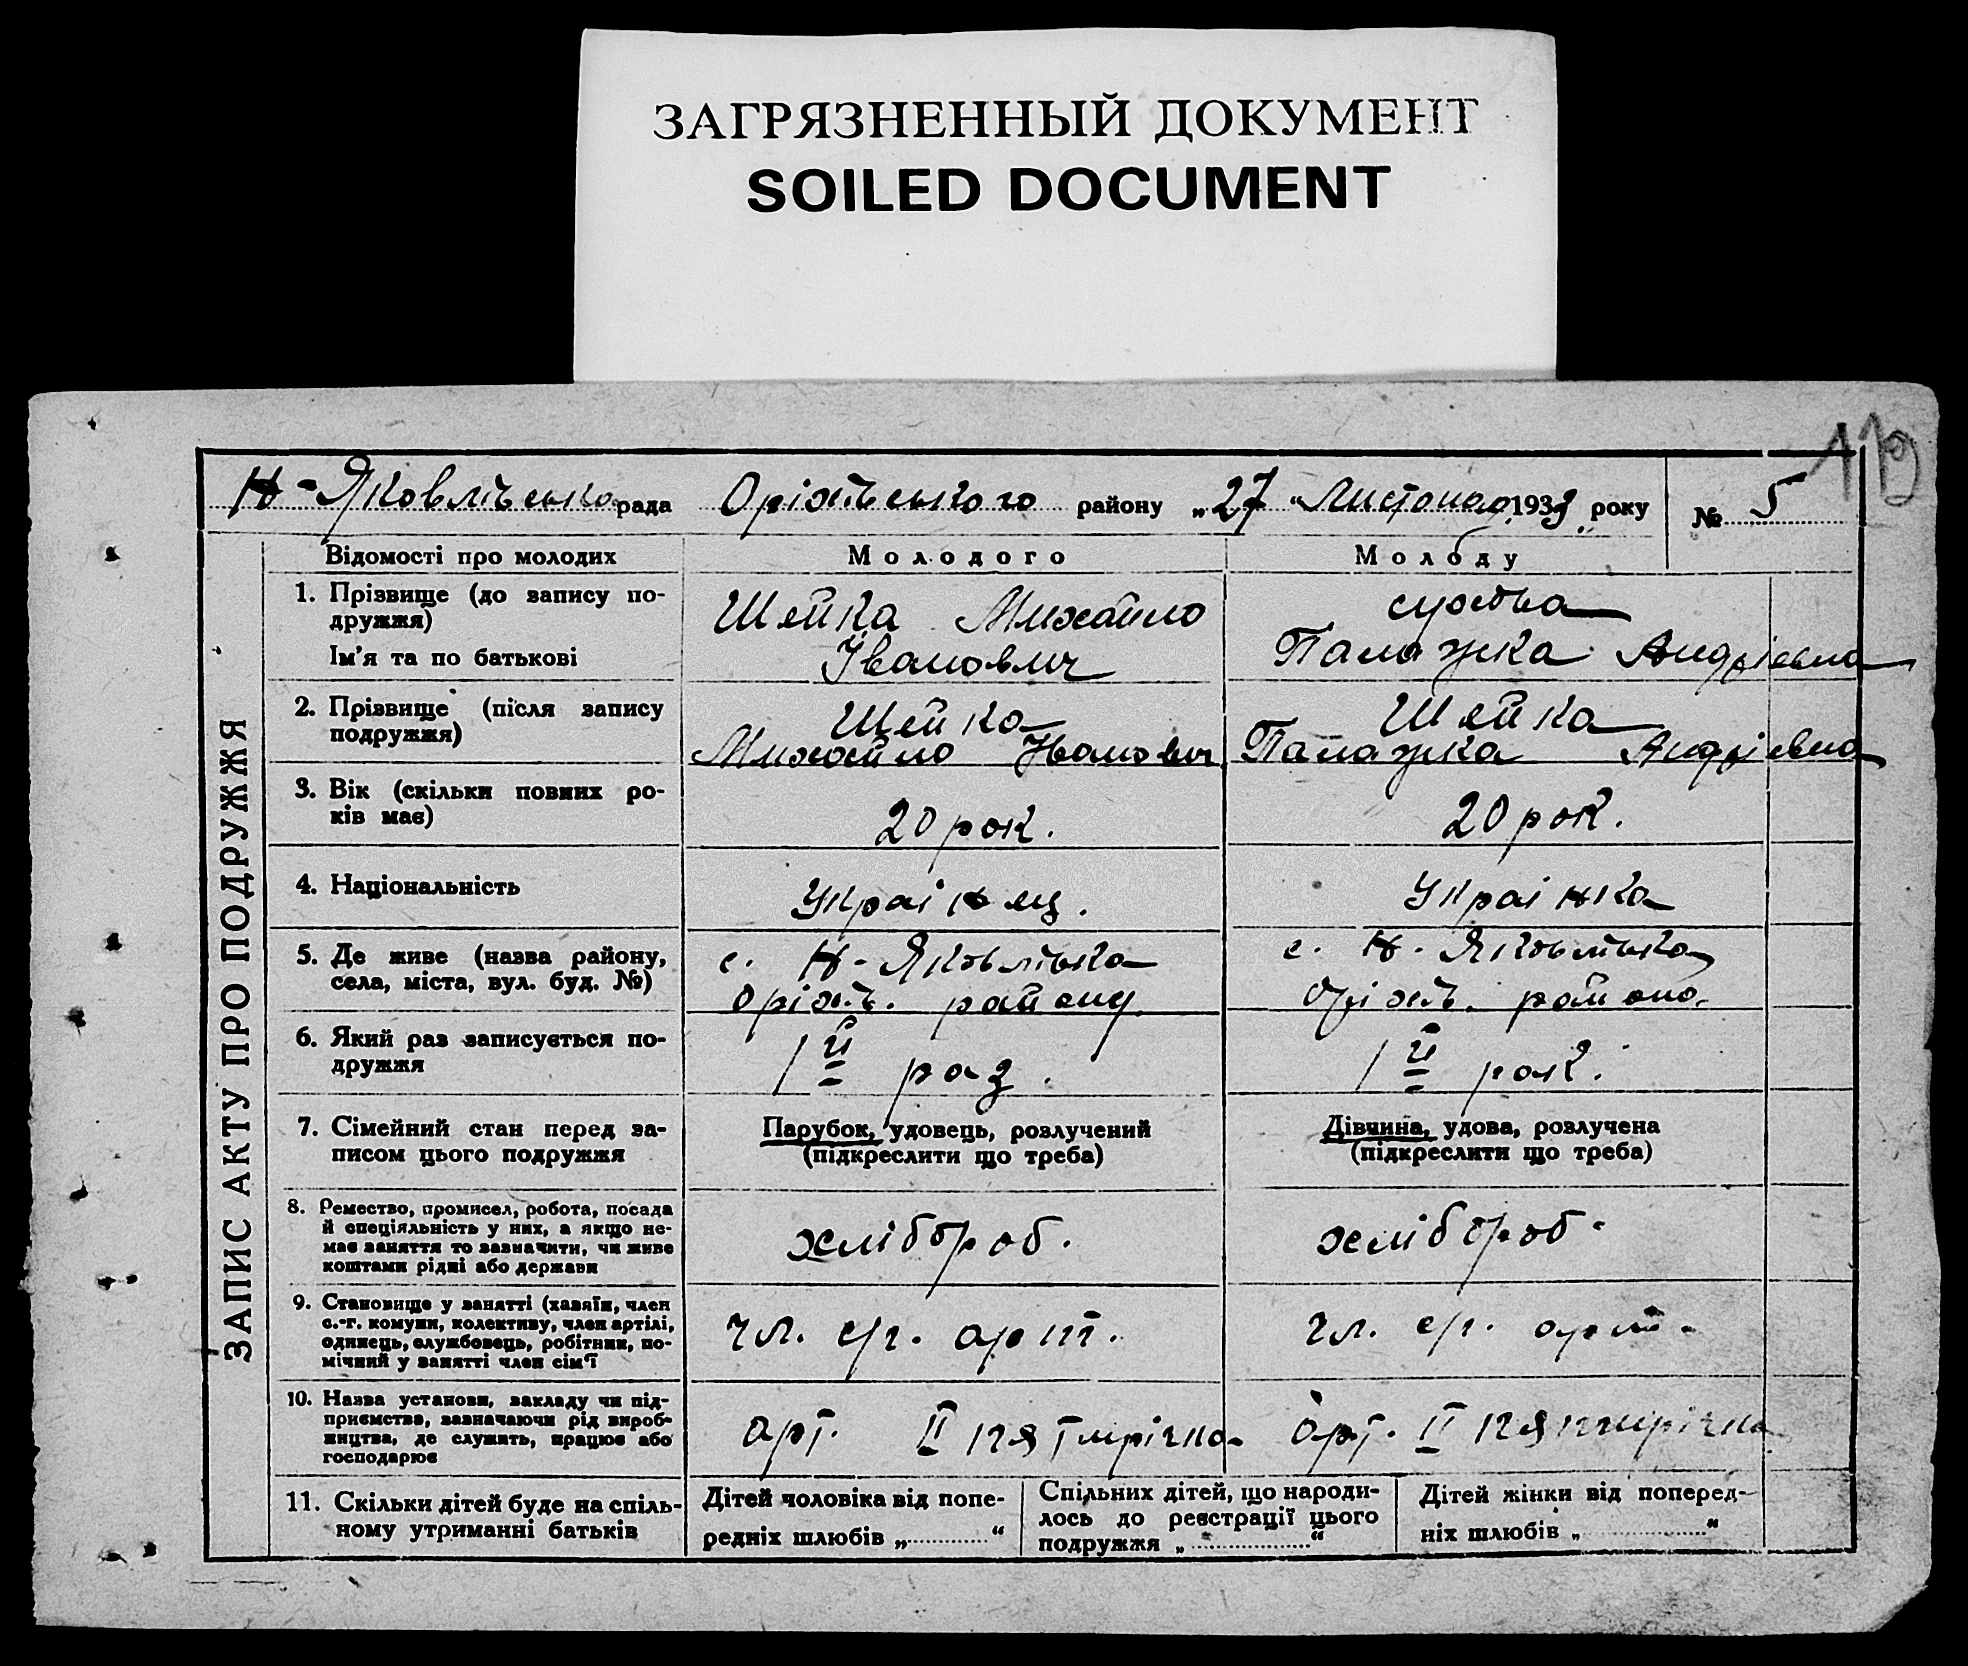 ЗАГРЯЗНЕННЫЙ ДОКУМЕНТ
SOILED DOCUMENT
Н-Яковлівсько рада Оріхівського району „27“ Листопад 1933 року № 5
Відомості про молодих
Молодого
Молоду
ЗАПИС АКТУ ПРО ПОДРУЖЖЯ
1. Прізвище (до запису по-
дружжя)
Ім'я та по батькові
Шейка Михайло
Іванович
Палажка Андрієвна
2. Прізвище (після запису
подружжя)
Шейка
Михайло Іванович
Шейка
Палажка Андрієвна
3. Вік (скільки повних ро-
ків має)
20 рок.
20 рок.
4. Національність
Украінец.
Украінка
5. Де живе (назва району,
села, міста, вул. буд. №)
с. Н-Яковлівка
Оріхів. району
с. Н. Яковлівка
Оріхів. району
6. Який раз записується по-
дружжя
1й раз.
1й
7. Сімейний стан перед за-
писом цього подружжя
Парубок, удовець, розлучений
(підкреслити що треба)
Дівчина, удова, розлучена
(підкреслити що треба)
8. Ремество, промисел, робота, посада
й спеціяльність у них, а якщо не-
має заняття то зазначити, чи живе
коштами рідні або держави
хлібороб.
хлібороб.
9. Становище у занятті (хазяїн, член
с.-г. комуни, колективу, член артілі,
одинець, службовець, робітник, по-
мічний у занятті член сім'ї
чл. с/г. арт.
чл. с/г. арт.
10. Назва установи, закладу чи під-
приємства, зазначаючи рід вироб-
ництва, де служить, працює або
господарює
арт. II пятирічка
арт. II пятирічка
11. Скільки дітей буде на спіль-
ному утриманні батьків
Дітей чоловіка від попе-
редніх шлюбів „ “
Спільних дітей, що народи-
лось до реєстрації цього
подружжя „ “
Дітей жінки від поперед-
ніх шлюбів „ “